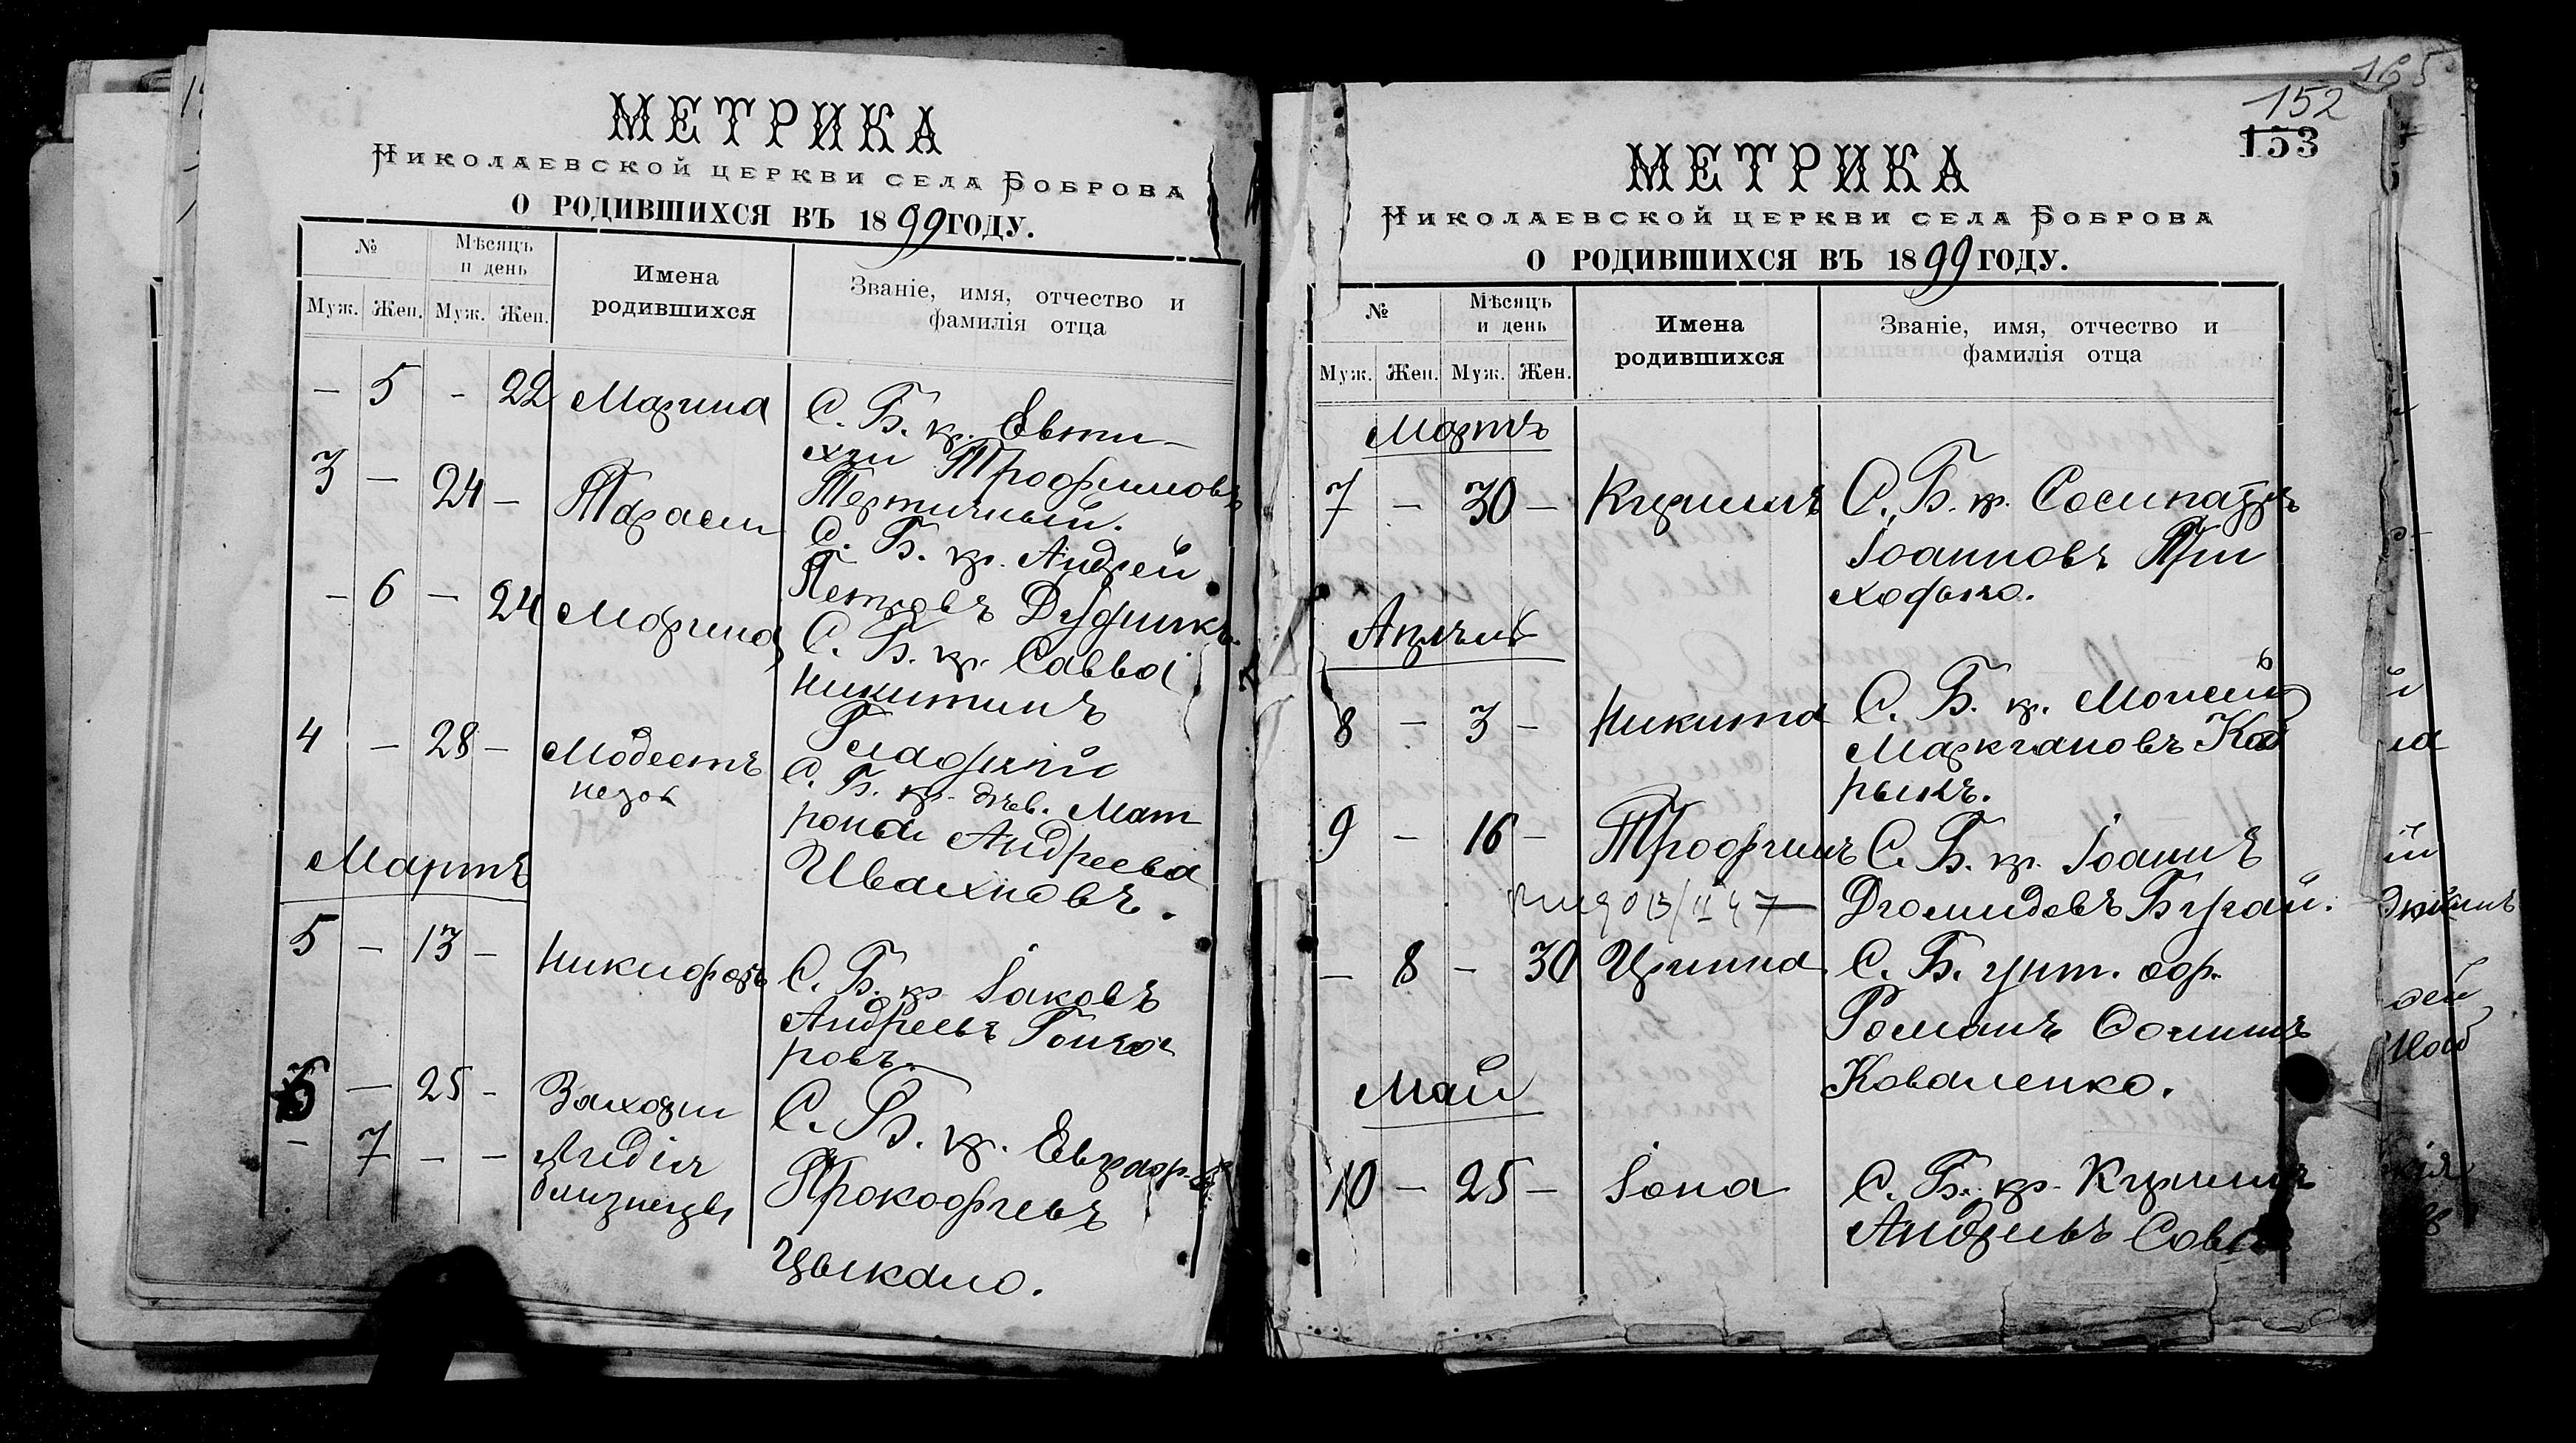 МЕТРИКА
Николаевской церкви села Боброва
О РОДИВШИХСЯ ВЪ 1899 ГОДУ.
№
Мѣсяцъ и день
Имена родившихся
Званіе, имя, отчество и фамилія отца
Муж. Жен. Муж. Жен.
— 5 - 22 Марина С. Б. кр. Евти-
хій Трофимовъ
Тертичный.
3 — 24 — Тарасій С. Б. кр. Андрей
Петровъ Дудникъ.
— 6 — 24 Марина С. Б. кр. Савва
Никитинъ
Гладкій
4 — 28 — Модестъ С. Б. кр. дѣв. Мат
незак рона Андреева
Ивахновъ.
Мартъ
5 — 13 — Никифоръ С. Б. кр. Іаковъ
Андреевъ Гонча
ровъ.
6 — 25 - Захарій С. Б. кр. Евграфъ
— 7 — — Лидія Прокофіевъ
близнецы
Цыкало.
165
152
153
МЕТРИКА
Николаевской церкви села Боброва
О РОДИВШИХСЯ ВЪ 1899 ГОДУ.
№
Мѣсяцъ и день
Имена родившихся
Званіе, имя, отчество и фамилія отца
Муж. Жен. Муж. Жен.
Мартъ
7 — 30 — Кириллъ С. Б. кр. Сосипатръ
Іоанновъ При
ходько.
Апрѣль
8 — 3 — Никита С. Б. кр. Моисей
Маркіановъ Ка
рыкъ.
9 — 16 — Трофимъ С. Б. кр. Іоаннъ
Діомидовъ Бугай.
— 8 — 30 Ирина С. Б. унт. оф.
Романъ Фоминъ
Коваленко.
Май
10 — 25 — Іона С. Б. кр. Кириллъ
Андреевъ